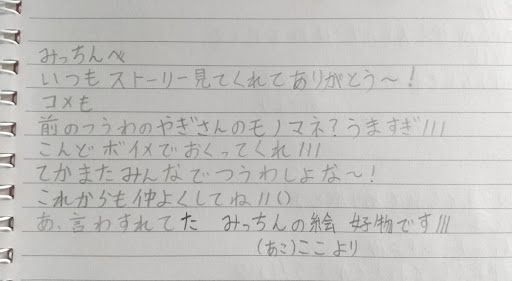 みっちんへ
いつもストーリー見てくれてありがとう〜！
コメも
前のつうわのやぎさんのモノマネ？うますぎ！！！
こんどボイメでおくってくれ！！！
てかまたみんなでつうわしよな〜！
これからも仲よくしてね！！()
あ、言わすれてた　みっちんの絵 好物です！！！
(あこ)ここより